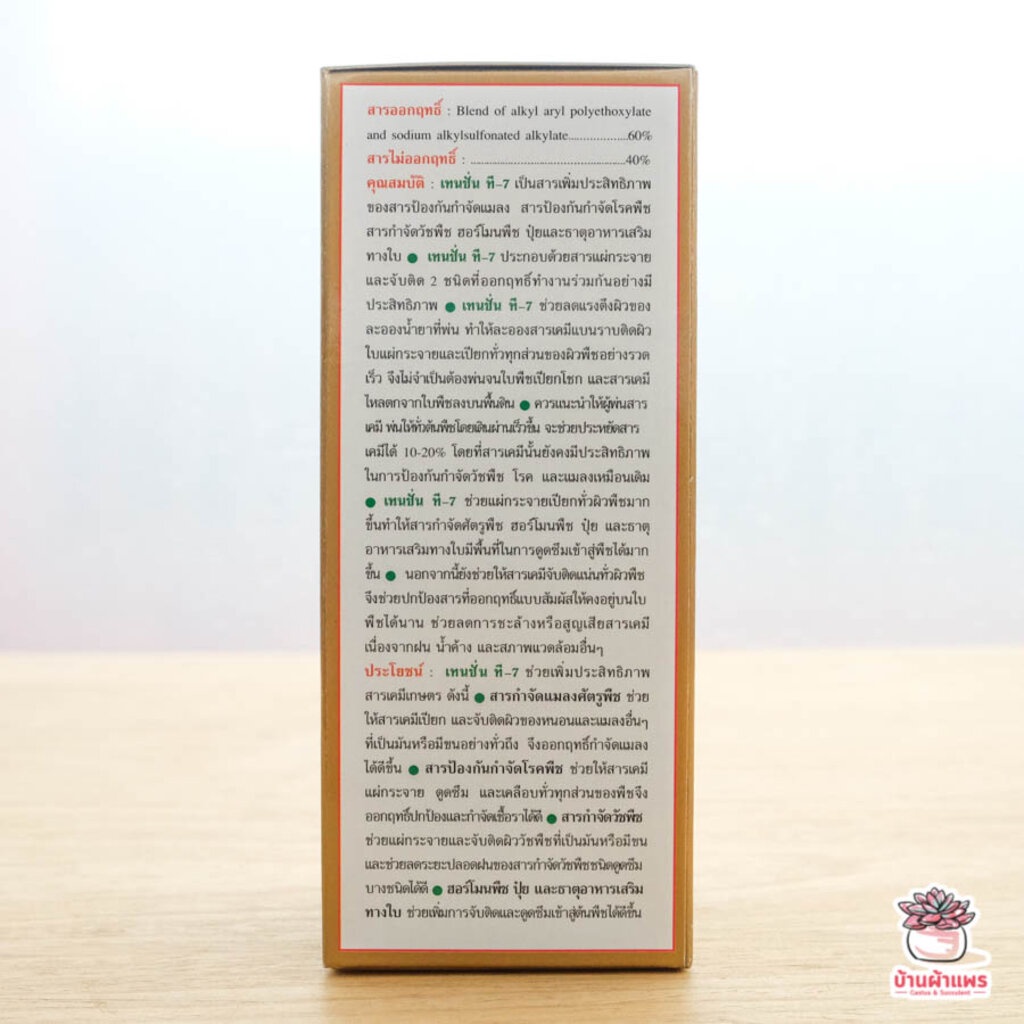 สารออกฤทธิ์ : Blend of alkyl aryl polyethoxylate
and sodium alkylsulfonated alkylate..................60%
สารไม่ออกฤทธิ์ : ..................................................40%
คุณสมบัติ : เทนชั่น ที-7 เป็นสารเพิ่มประสิทธิภาพ
ของสารป้องกันกำจัดแมลง สารป้องกันกำจัดโรคพืช
สารกำจัดวัชพืช ฮอร์โมนพืช ปุ๋ยและธาตุอาหารเสริม
ทางใบ ● เทนชั่น ที-7 ประกอบด้วยสารแผ่กระจาย
และจับติด 2 ชนิดที่ออกฤทธิ์ทำงานร่วมกันอย่างมี
ประสิทธิภาพ ● เทนชั่น ที-7 ช่วยลดแรงตึงผิวของ
ละอองน้ำยาที่พ่น ทำให้ละอองสารเคมีแบนราบติดผิว
ใบแผ่กระจายและเปียกทั่วทุกส่วนของผิวพืชอย่างรวด
เร็ว จึงไม่จำเป็นต้องพ่นจนใบพืชเปียกโชก และสารเคมี
ไหลตกจากใบพืชลงบนพื้นดิน ● ควรแนะนำให้ผู้พ่นสาร
เคมี พ่นให้ทั่วต้นพืชโดยเดินผ่านเร็วขึ้น จะช่วยประหยัดสาร
เคมีได้ 10-20% โดยที่สารเคมีนั้นยังคงมีประสิทธิภาพ
ในการป้องกันกำจัดวัชพืช โรค และแมลงเหมือนเดิม
● เทนชั่น ที-7 ช่วยแผ่กระจายเปียกทั่วผิวพืชมาก
ขึ้นทำให้สารกำจัดศัตรูพืช ฮอร์โมนพืช ปุ๋ย และธาตุ
อาหารเสริมทางใบมีพื้นที่ในการดูดซึมเข้าสู่พืชได้มาก
ขึ้น ● นอกจากนี้ยังช่วยให้สารเคมีจับติดแน่นทั่วผิวพืช
จึงช่วยปกป้องสารที่ออกฤทธิ์แบบสัมผัสให้คงอยู่บนใบ
พืชได้นาน ช่วยลดการชะล้างหรือสูญเสียสารเคมี
เนื่องจากฝน น้ำค้าง และสภาพแวดล้อมอื่นๆ
ประโยชน์ : เทนชั่น ที-7 ช่วยเพิ่มประสิทธิภาพ
สารเคมีเกษตร ดังนี้ ● สารกำจัดแมลงศัตรูพืช ช่วย
ให้สารเคมีเปียก และจับติดผิวของหนอนและแมลงอื่นๆ
ที่เป็นมันหรือมีขนอย่างทั่วถึง จึงออกฤทธิ์กำจัดแมลง
ได้ดีขึ้น ● สารป้องกันกำจัดโรคพืช ช่วยให้สารเคมี
แผ่กระจาย ดูดซึม และเคลือบทั่วทุกส่วนของพืชจึง
ออกฤทธิ์ปกป้องและกำจัดเชื้อราได้ดี ● สารกำจัดวัชพืช
ช่วยแผ่กระจายและจับติดผิววัชพืชที่เป็นมันหรือมีขน
และช่วยลดระยะปลอดฝนของสารกำจัดวัชพืชชนิดดูดซึม
บางชนิดได้ดี ● ฮอร์โมนพืช ปุ๋ย และธาตุอาหารเสริม
ทางใบ ช่วยเพิ่มการจับติดและดูดซึมเข้าสู่ต้นพืชได้ดีขึ้น
บ้านผ้าแพร
Cactus & Succulent